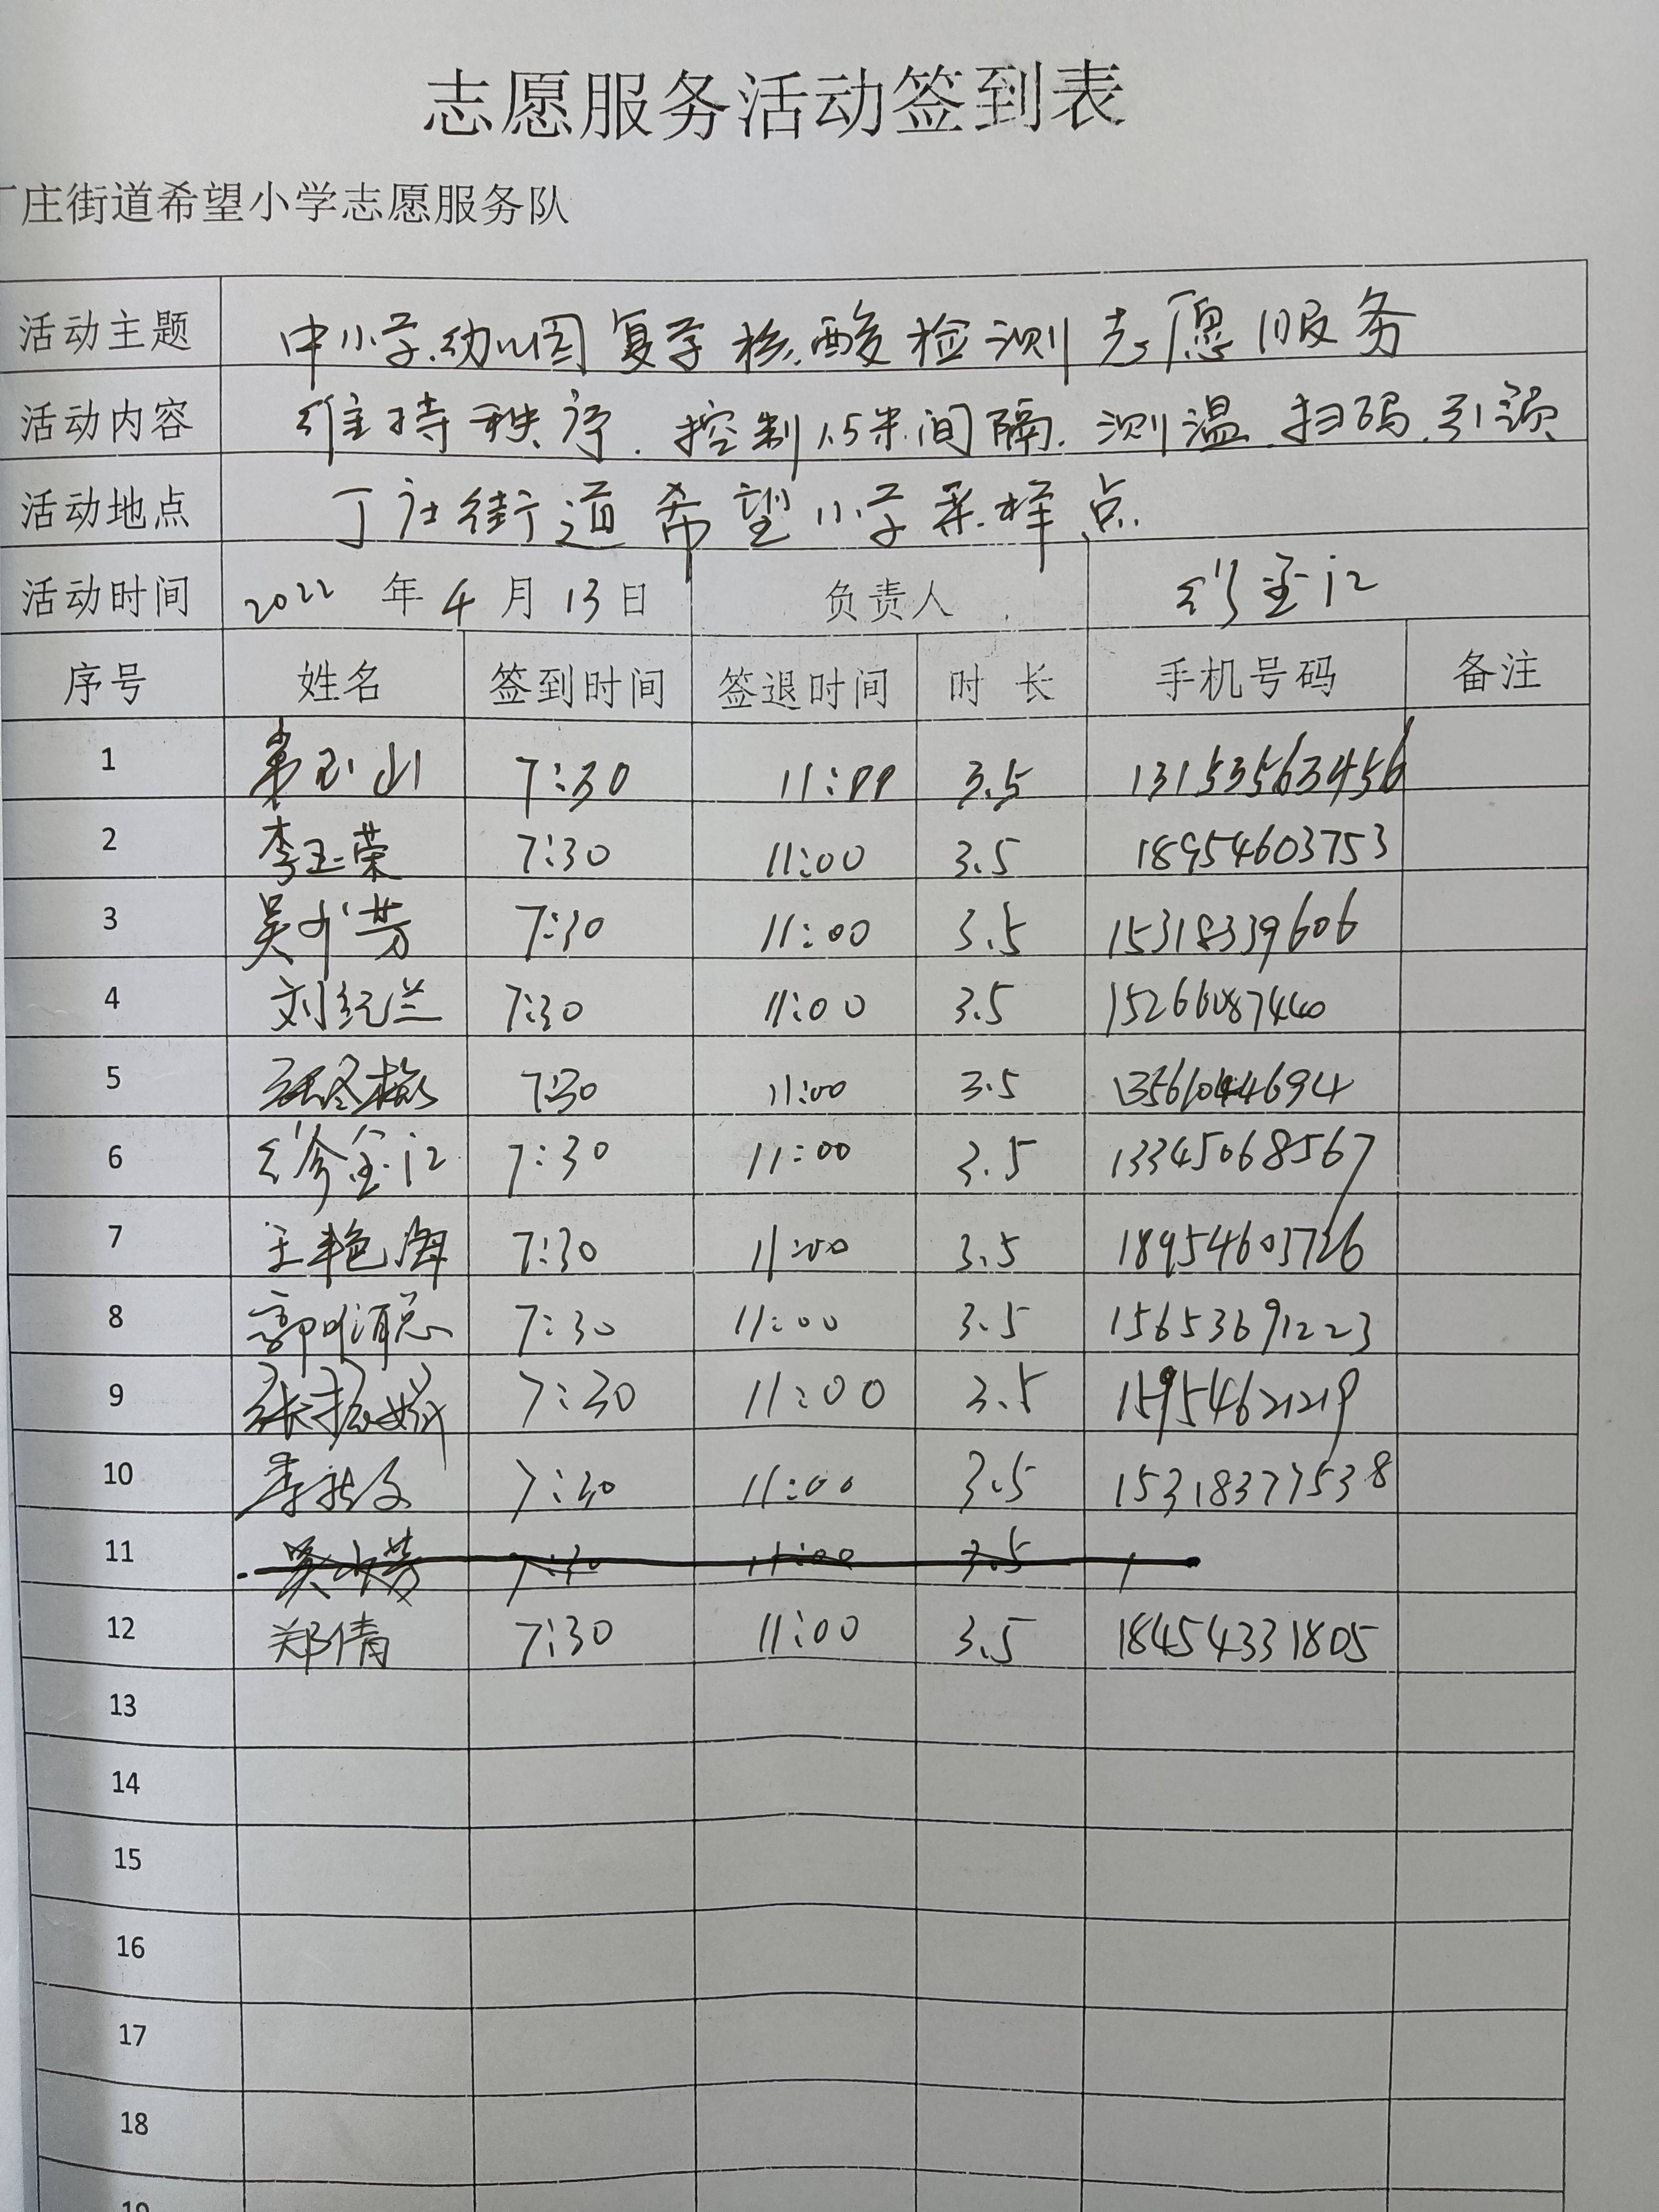 志愿服务活动签到表
丁庄街道希望小学志愿服务队
活动主题 中小学.幼儿园复学核酸检测志愿服务
活动内容 维持秩序.控制1.5米间隔.测温.扫码.引领
活动地点 丁庄街道希望小学采样点
活动时间 2022 年 4 月 13 日 负责人 金江
序号 姓名 签到时间 签退时间 时 长 手机号码 备注
1 玉山 7:30 11:00 3.5 13153563456
2 李玉荣 7:30 11:00 3.5 18954603753
3 吴小芳 7:30 11:00 3.5 15318339606
4 刘红兰 7:30 11:00 3.5 15266087440
5 张冬梅 7:30 11:00 3.5 13561044694
6 金江 7:30 11:00 3.5 13345068567
7 王艳海 7:30 11:00 3.5 18954603726
8 郭 7:30 11:00 3.5 15653691223
9 张振 7:30 11:00 3.5 15954621219
10 李 7:30 11:00 3.5 15318377538
11 吴小芳 7:30 11:00 3.5 1
12 郑倩 7:30 11:00 3.5 18454331805
13
14
15
16
17
18
19